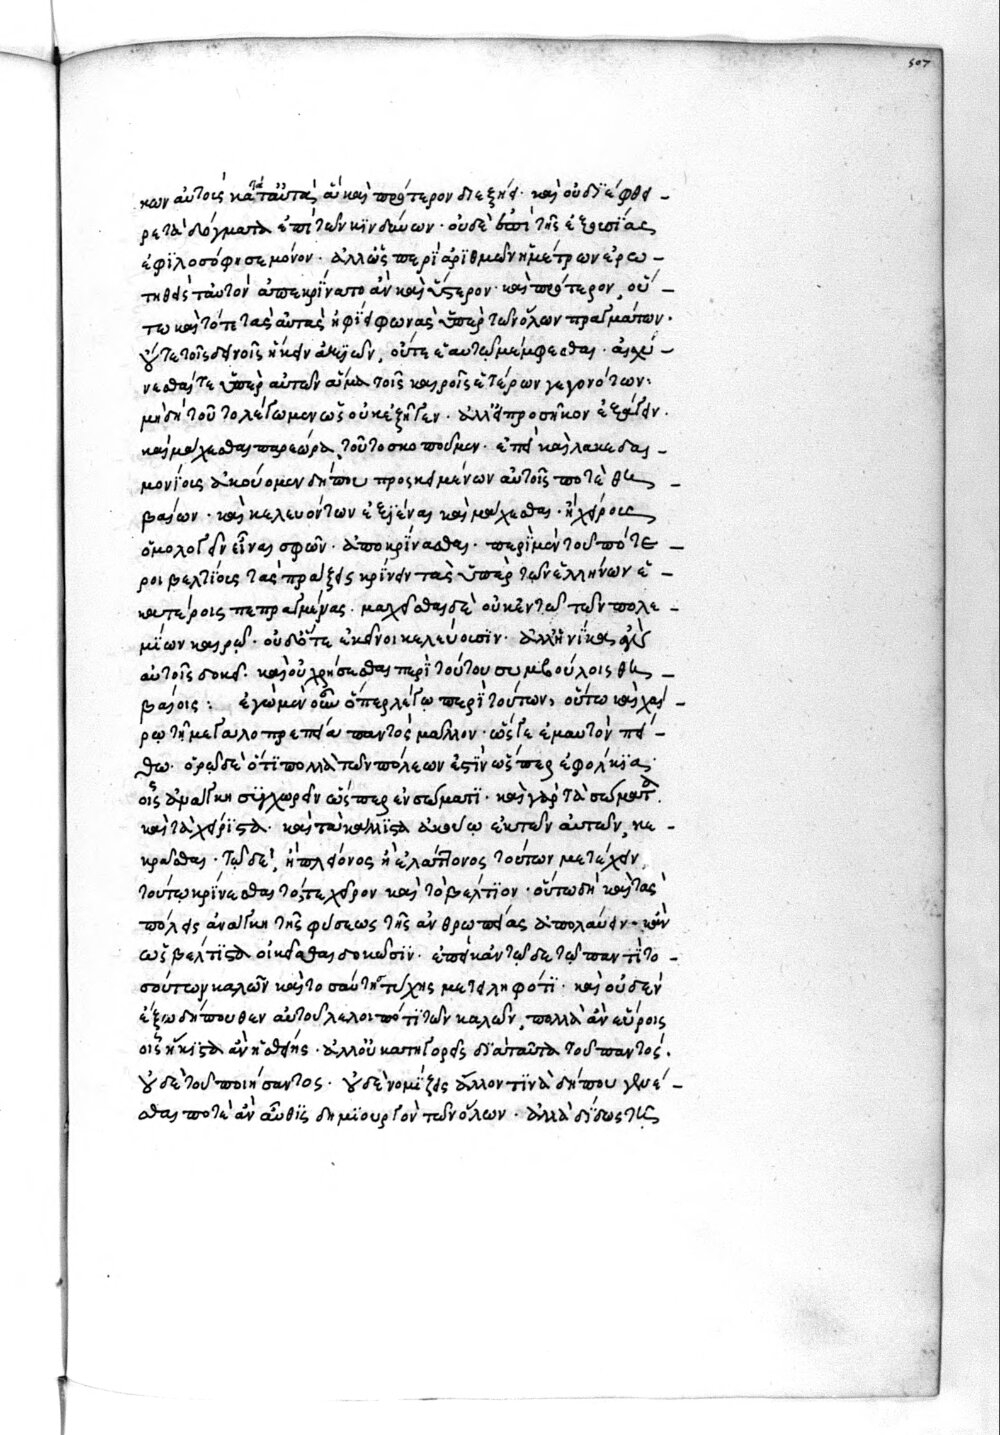 κων αὐτοῖς κατὰ ταὐτὰς ἃ καὶ πρότερον διεξῄει· καὶ οὐ διέφθει-
ρε τὰ δόγματα ἐπὶ τῶν κινδύνων· οὐδὲ ἐπὶ τῆς ἐξουσίας
ἐφιλοσόφησε μόνον· ἀλλ' ὡς περὶ ἀριθμῶν ἢ μέτρων ἐρω-
τηθεὶς ταὐτὸν ἀπεκρίνατο ἂν καὶ ὕστερον· καὶ πρότερον, οὕ-
τω καὶ τότε τὰς αὐτὰς ἠφίει φωνὰς ὑπὲρ τῶν ὅλων πραγμάτων·
οὔτε τοῖς δεινοῖς ἧκεν ἀπειπὼν, οὔτε ἑαυτῷ μέμφεσθαι· αἰσχύ-
νεσθαί τε ὑπὲρ αὐτῶν ἅμα τοῖς καιροῖς ἑτέρων γεγονότων:
μὴ δὴ τοῦτο λέγωμεν ὡς οὐκ ἐζήτεν· ἀλλ' εἰ προσῆκον ἐξάγειν·
καὶ μάχεσθαι παρεώρα, τοῦτο σκοποῦμεν· ἐπεὶ καὶ λακεδαι-
μονίοις ἀκούομεν δήπου προσκειμένων αὐτοῖς ποτὲ θη-
βαίων· καὶ κελευόντων ἐξιέναι καὶ μάχεσθαι· ἢ χείροις
ὁμολογεῖν εἶναι σφῶν· ἀποκρίνασθαι· περὶ μὲν τοῦ πότε-
ροι βελτίους τὰς πράξεις κρίνειν τὰς ὑπὲρ τῶν ἑλλήνων ἑ-
κατέροις πεπραγμένας· μαχεῖσθαι δὲ οὐκ ἐν τῷ τῶν πολε-
μίων καιρῷ· οὐδ' ὅτε ἐκεῖνοι κελεύουσιν· ἀλλ' ἡνίκα
αὐτοῖς δοκεῖ· καὶ οὐ χρήσεσθαι περὶ τούτου συμβούλοις θη-
βαίοις: ἐγὼ μὲν οὖν ὅπερ λέγω περὶ τούτων, οὕτω καὶ χαί-
ρω τῇ μεγαλοπρεπείᾳ παντὸς μᾶλλον· ὥστε ἐμαυτὸν πεί-
θω· ὁρῶ δὲ ὅτι πολλὰ τῶν πόλεων ἐστὶν ὥσπερ ἐφολκίας·
οἷς ἀνάγκη συγχωρεῖν ὥσπερ ἐν σώματι· καὶ γὰρ τὰ σώματος
καὶ τὰ χείριστα· καὶ τὰ κάλλιστα ἀκούω ἐκ τῶν αὐτῶν, κε-
κρᾶσθαι· τῷ δὲ, ἢ πλείονος ἢ ἐλάττονος τούτων μετέχειν,
τούτῳ κρίνεσθαι τό τε χεῖρον καὶ τὸ βέλτιον· οὕτω δὴ καὶ τὰς
πόλεις ἀνάγκη τῆς φύσεως τῆς ἀνθρωπείας ἀπολαύειν· κἂν
ὡς βέλτιστα οἰκεῖσθαι δοκῶσιν· ἐπεὶ κἀν τῷδε τῷ παντὶ το-
σούτων καλῶν καὶ τοσαύτης τύχης μετειληφότι· καὶ οὐδὲν
ἔξω δήπουθεν αὐτοῦ λελοιπότι τῶν καλῶν, πολλὰ ἂν εὕροις
οἷς ἥκιστα ἂν ἡσθείης· ἀλλ' οὐ κατηγορεῖς διὰ ταῦτα τοῦ παντός·
οὐδὲ τοῦ ποιήσαντος· οὐδὲ νομίζεις ἄλλον τινὰ δήπου γενέ-
σθαι ποτὲ ἂν αὖθις δημιουργὸν τῶν ὅλων· ἀλλὰ δίδως τις